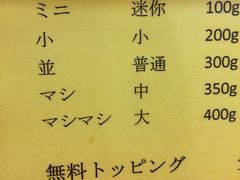 ミニ 迷你 100g
小 小 200g
並 普通 300g
マシ 中 350g
マシマシ 大 400g
無料トッピング